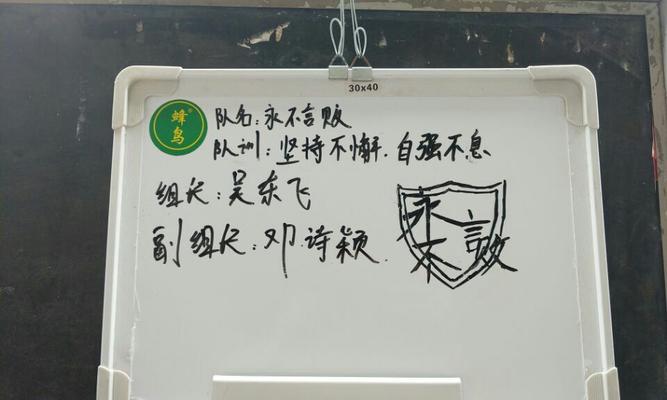 30x40
蜂鸟®
队名:永不言败
队训:坚持不懈.自强不息
组长:吴东飞
副组长:邓诗颖
永言
不败